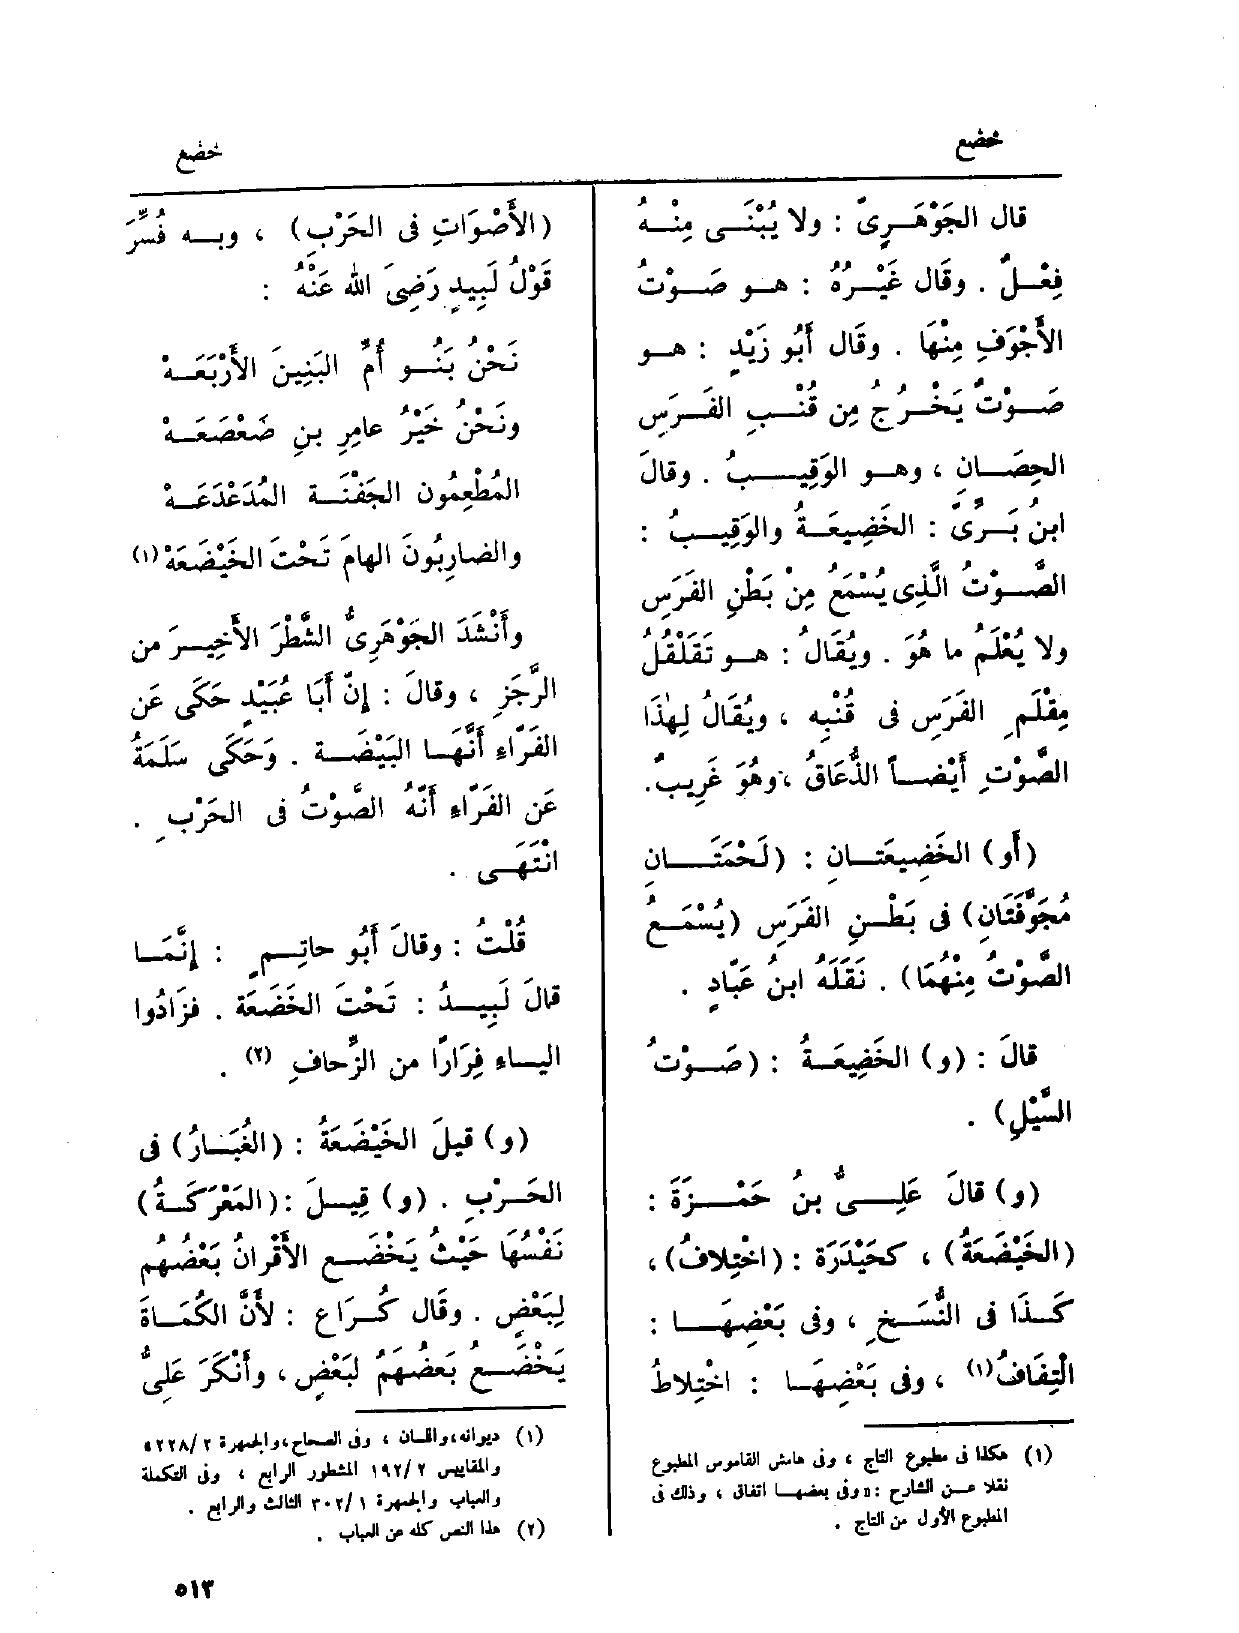 خضع
خضع
قال الجَوْهَرِىّ : ولا يُبْنَى مِنْهُ
فِعْلٌ . وقَال غَيْرُهُ : هو صَوْتُ
الأَجْوَفِ مِنْهَا . وقَال أَبُو زَيْدٍ : هو
صَوْتٌ يَخْرُجُ مِن قُنْبِ الفَرَسِ
الحِصَانِ ، وهو الوَقِيبُ . وقالَ
ابنُ بَرِّىّ : الخَضِيعَةُ والوَقِيبُ :
الصَّوْتُ الَّذِى يُسْمَعُ مِنْ بَطْنِ الفَرَسِ
ولا يُعْلَمُ ما هُوَ . ويُقَالُ : هو تَقَلْقُلُ
مِقْلَمِ الفَرَسِ فى قُنْبِه ، ويُقَالُ لِهٰذَا
الصَّوْتِ أَيْضاً الذُّعَاقُ ، وهُوَ غَرِيبٌ.
(أَو) الخَضِيعَتانِ : (لَحْمَتَانِ
مُجَوَّفَتَانِ) فى بَطْنِ الفَرَسِ (يُسْمَعُ
الصَّوْتُ مِنْهُمَا) . نَقَلَهُ ابنُ عَبّادٍ .
قالَ : (و) الخَضِيعَةُ : (صَوْتُ
السَّيْلِ) .
(و) قالَ عَلِىُّ بنُ حَمْزَةَ :
(الخَيْضَعَةُ) ، كحَيْدَرَة : (اخْتِلافُ) ،
كَذَا فى النُّسَخِ ، وفى بَعْضِهَا :
الْتِفَافُ(١) ، وفى بَعْضِهَا : اخْتِلاطُ
(١) هكذا فى مطبوع التاج ، وفى هامش القاموس المطبوع
نقلا عن الشارح : « وفى بعضها اتفاق ، وذلك فى
المطبوع الأول من التاج .
(الأَصْوَاتِ فى الحَرْبِ) ، وبه فُسِّرَ
قَوْلُ لَبِيدٍ رَضِىَ الله عَنْهُ :
نَحْنُ بَنُو أُمِّ البَنِينَ الأَرْبَعَهْ
ونَحْنُ خَيْرُ عامِرِ بنِ صَعْصَعَهْ
المُطْعِمُون الجَفْنَة المُدَعْدَعَهْ
والضارِبُونَ الهامَ تَحْتَ الخَيْضَعَهْ(١)
وأَنْشَدَ الجَوْهَرِىُّ الشَّطْرَ الأَخِيرَ من
الرَّجَزِ ، وقالَ : إِنّ أَبَا عُبَيْدٍ حَكَى عَن
الفَرّاءِ أَنَّهَا البَيْضَة . وَحَكَى سَلَمَةُ
عَن الفَرّاءِ أَنّهُ الصَّوْتُ فى الحَرْبِ .
انْتَهَى .
قُلْتُ : وقالَ أَبُو حاتِمٍ : إِنَّمَا
قالَ لَبِيدُ : تَحْتَ الخَضَعَة . فزَادُوا
الياء فِرَارًا من الزِّحافِ (٢) .
(و) قيلَ الخَيْضَعَةُ : (الغُبَارُ) فى
الحَرْبِ . (و) قِيلَ : (المَعْرَكَةُ)
نَفْسُهَا حَيْثُ يَخْضَع الأَقْرانُ بَعْضُهم
لِبَعْضٍ . وقَال كُرَاع : لأَنَّ الكُمَاةَ
يَخْضَعُ بَعضُهُمْ لبَعْضٍ ، وأَنْكَرَ عَلِىُّ
(١) ديوانه، واللسان ، وفى الصحاح، والجمهرة ٢٢٨/٢،
والمقاييس ١٩٢/٢ المشطور الرابع ، وفى التكملة
والعباب والجمهرة ٣٠٢/١ الثالث والرابع .
(٢) هذا النص كله عن العباب .
٥١٣